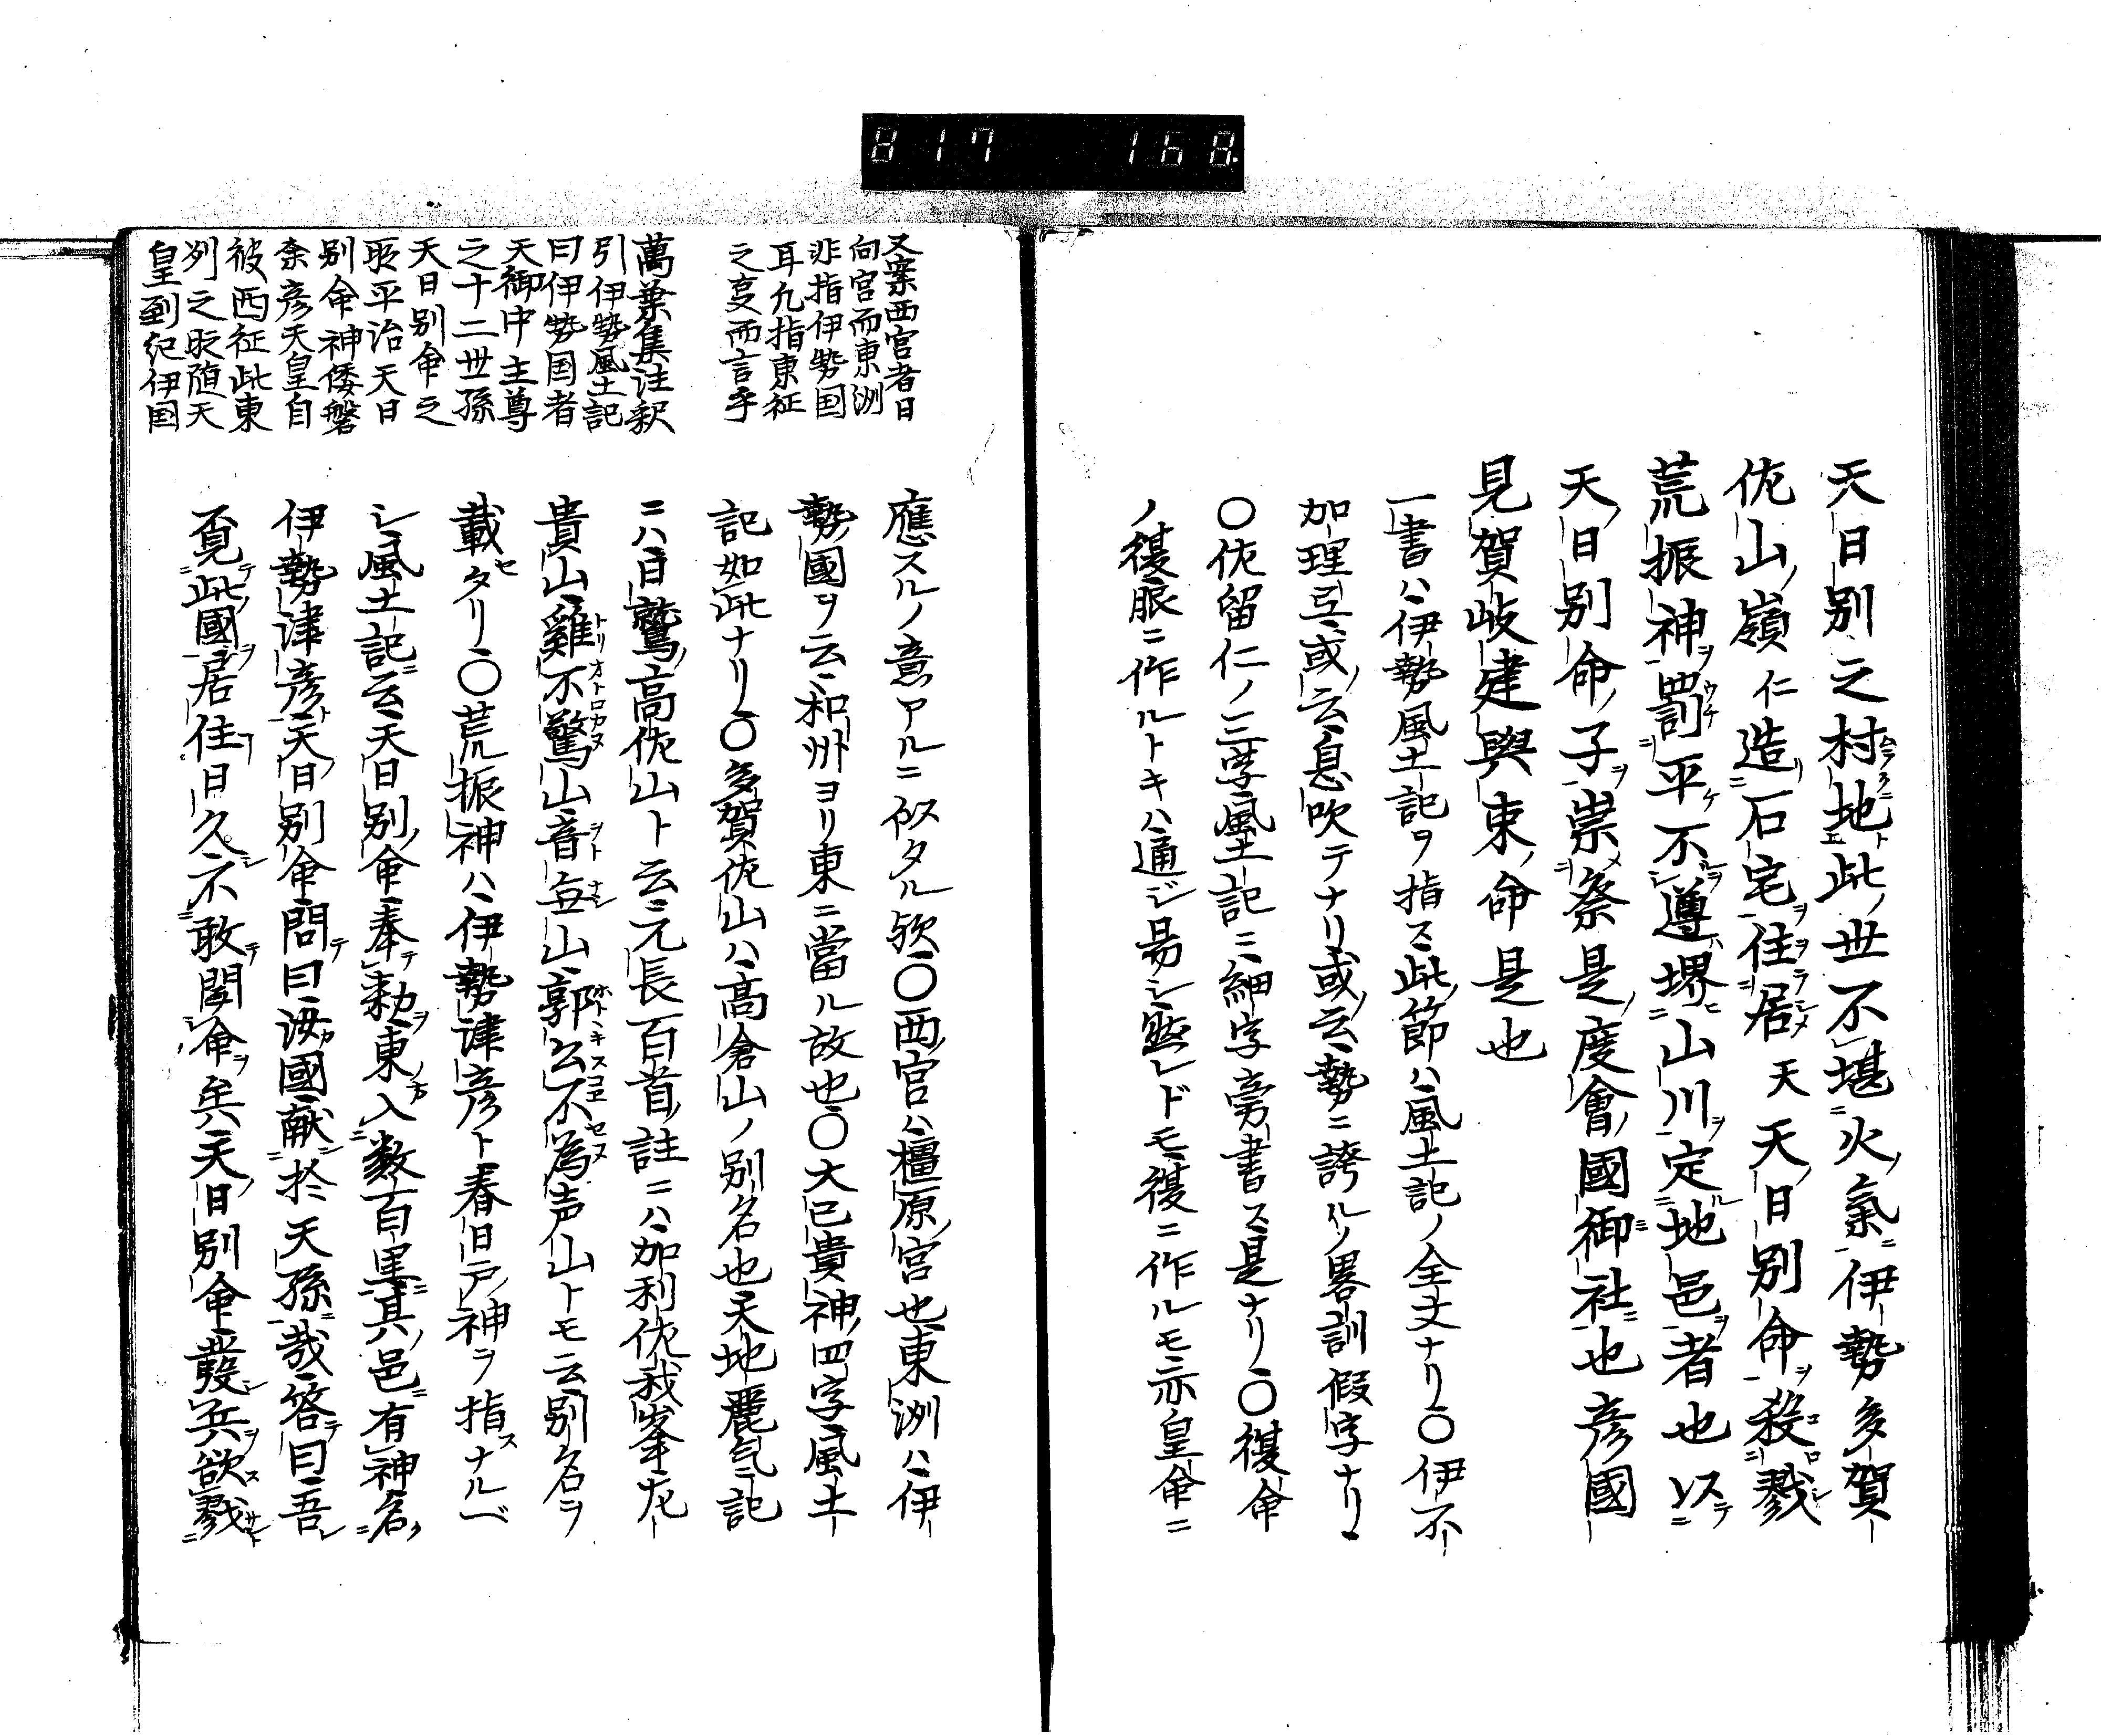 817 168
天日別之村地此世不堪火氣伊勢多賀
佐山嶺仁造石宅住居天天日別命殺戮
荒振神罰平不遵堺山川定地邑者也
天日別命子崇祭是度會國御社也彦國
見賀岐建與東命是也
一書ハ伊勢風土記ヲ指ス此節ハ風土記ノ全文ナリ〇伊不
加理弖或云息吹テナリ或云勢ニ誇ルノ畧訓假字ナリ
〇佐留仁ノ三字風土記ニ細字旁書ス是ナリ〇復命
ノ復服ニ作ルトキハ通ジ易シ然レドモ復ニ作ルモ亦皇命ニ
又案西宮者日
向宮而東洲
非指伊勢国
耳凡指東征
之変而言乎
萬葉集注釈
引伊勢風土記
曰伊勢国者
天御中主尊
之十二世孫
天日別命之
所平治天日
別命神倭磐
余彦天皇自
彼西征此東
列之時随天
皇到紀伊国
應スルノ意アルニ似タル欤〇西宮ハ橿原宮也東洲ハ伊
勢國ヲ云和州ヨリ東ニ當ル故也〇大己貴神四字風土
記如此ナリ〇多賀佐山ハ高倉山ノ別名也天地麗気記
ニハ日鷲高佐山ト云元長百首註ニハ加利佐我峯尤
貴山雞不驚山音無山郭公不為声山トモ云別名ヲ
載セタリ〇荒振神ハ伊勢津彦ト春日戸神ヲ指スナルベ
シ風土記云天日別命奉勅東入数百里其邑有神名
伊勢津彦天日別命問曰汝國献於天孫哉答曰吾
覓此國居住日久不敢聞命矣天日別命發兵欲戮